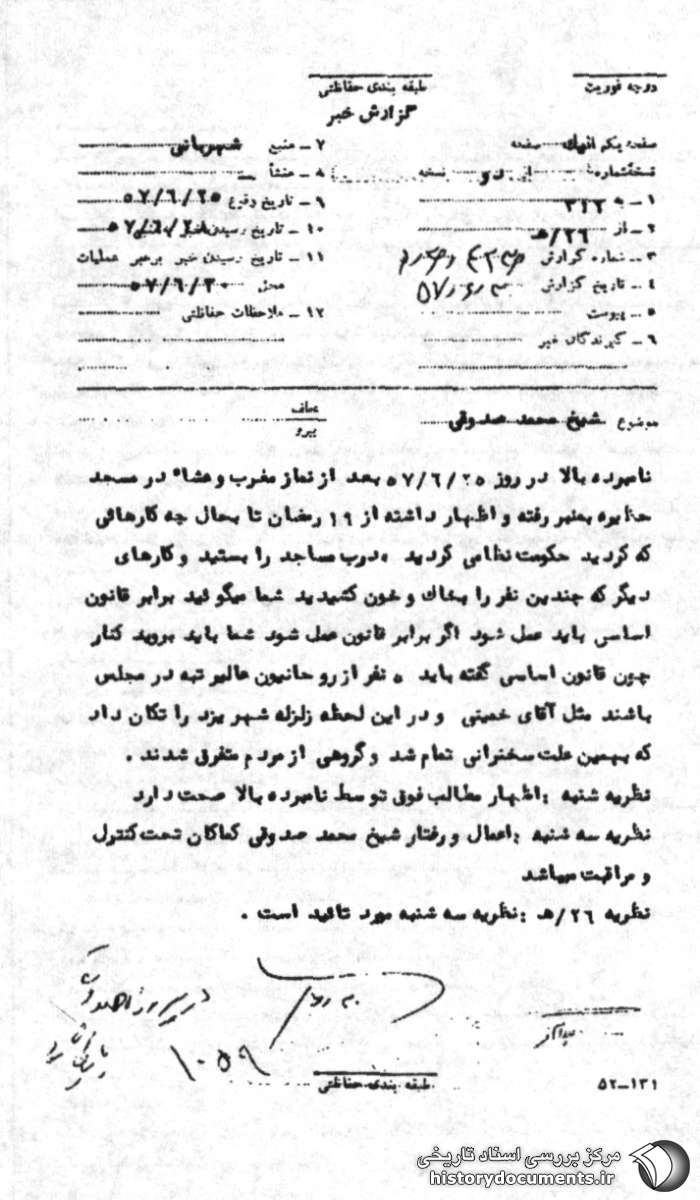 درجه فوریت
طبقه بندی حفاظتی
گزارش خبر
صفحه یکم ازیک صفحه
نسخه شماره از دو نسخه
۱ – به ۳۱۲
۲ – از ۲۶/هـ
۳ – شماره گزارش
۴ – تاریخ گزارش
۵ – پیوست
۶ – گیرندگان خبر
۷ – منبع شهربانی
۸ – منشأ
۹ – تاریخ وقوع ۵۷/۶/۲۵
۱۰ – تاریخ رسیدن خبر
۱۱ – تاریخ رسیدن خبر برهبر عملیات
محل ۵۷/۶/۳۰
۱۲ – ملاحظات حفاظتی
موضوع شیخ محمد صدوقی
عطف
پیرو
نامبرده بالا در روز ۵۷/۶/۲۵ بعد از نماز مغرب و عشاء در مسجد
حظیره بمنبر رفته و اظهار داشته از ۱۹ رمضان تا بحال چه کارهائی
که کردید حکومت نظامی کردید ، درب مساجد را بستید و کارهای
دیگر که چندین نفر را بخاک و خون کشیدید شما میگوئید برابر قانون
اساسی باید عمل شود اگر برابر قانون عمل شود شما باید بروید کنار
چون قانون اساسی گفته باید ۵ نفر از روحانیون عالیرتبه در مجلس
باشند مثل آقای خمینی و در این لحظه زلزله شهر یزد را تکان داد
که بهمین علت سخنرانی تمام شد و گروهی از مردم متفرق شدند .
نظریه شنبه : اظهار مطالب فوق توسط نامبرده بالا صحت دارد
نظریه سه شنبه : اعمال و رفتار شیخ محمد صدوقی کماکان تحت کنترل
و مراقبت میباشد
نظریه ۲۶/هـ : نظریه سه شنبه مورد تائید است .
۱۰۵۹
طبقه بندی حفاظتی
۵۲–۱۳۱
مرکز بررسی اسناد تاریخی
historydocuments.ir